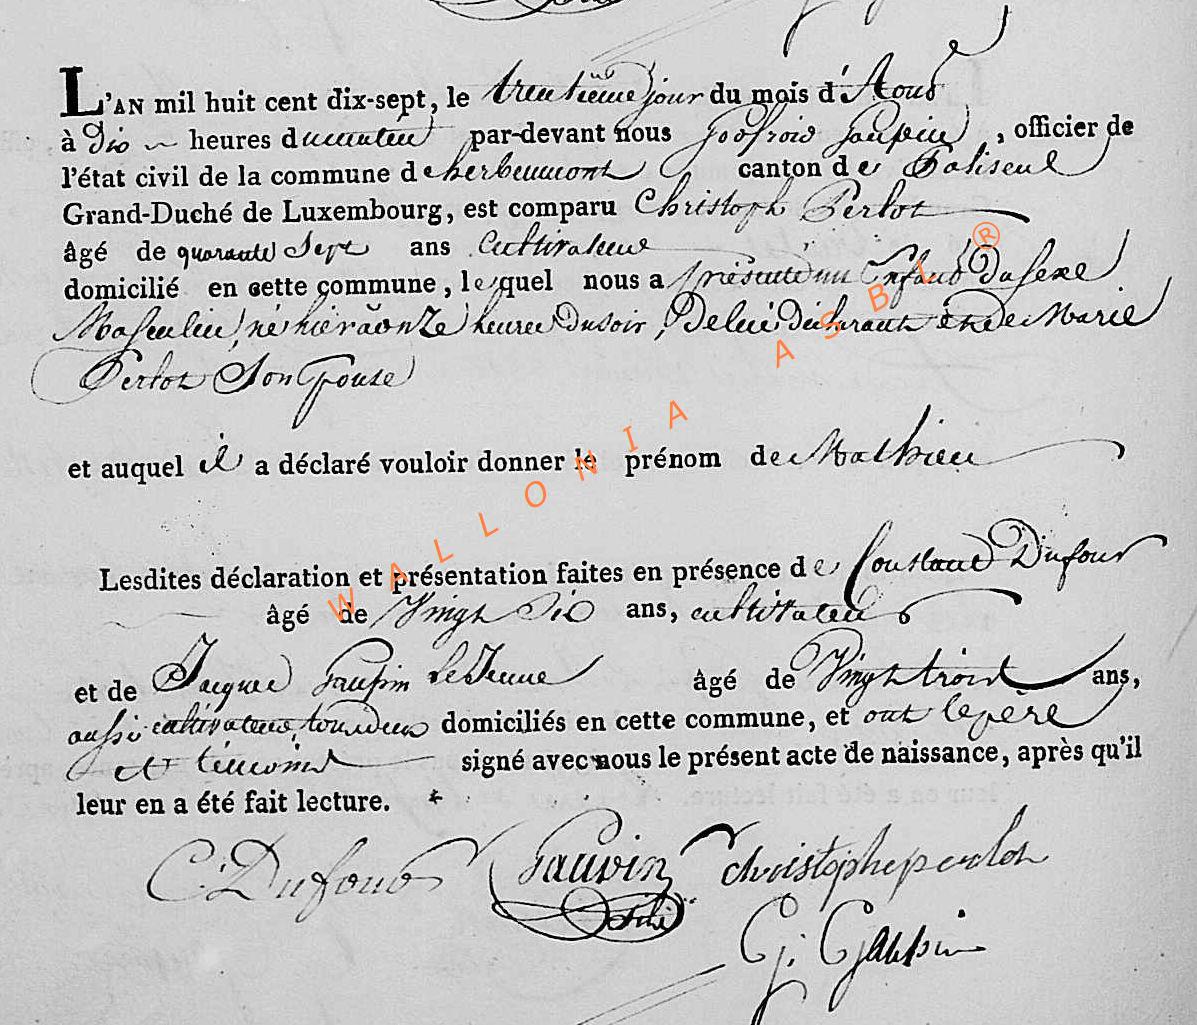 L'AN mil huit cent dix-sept, le trentieme jour du mois d'Aout
à Dix heures du matin par-devant nous Godfroid Gaupin, officier de
l'état civil de la commune d'herbeumont canton de Paliseul
Grand-Duché de Luxembourg, est comparu Christoph Perlot
âgé de quarante Sept ans Cultivateur
domicilié en cette commune, lequel nous a présenté un Enfant Du Sexe
Masculin, né hier à onze heures Du soir, De lui Déclarant et de Marie
Perlot Son Epouse
et auquel il a déclaré vouloir donner le prénom de Mathieu
Lesdites déclaration et présentation faites en présence de Constant Dufour
âgé de Vingt Six ans, cultivateur
et de Jacques Gaupin le Jeune âgé de Vingt trois ans,
aussi cultivateur, tous deux domiciliés en cette commune, et ont le père
et témoins signé avec nous le présent acte de naissance, après qu'il
leur en a été fait lecture.
C Dufour Gauvin christophe perlot
G: Gaupin
WALLONIA ASBL ®